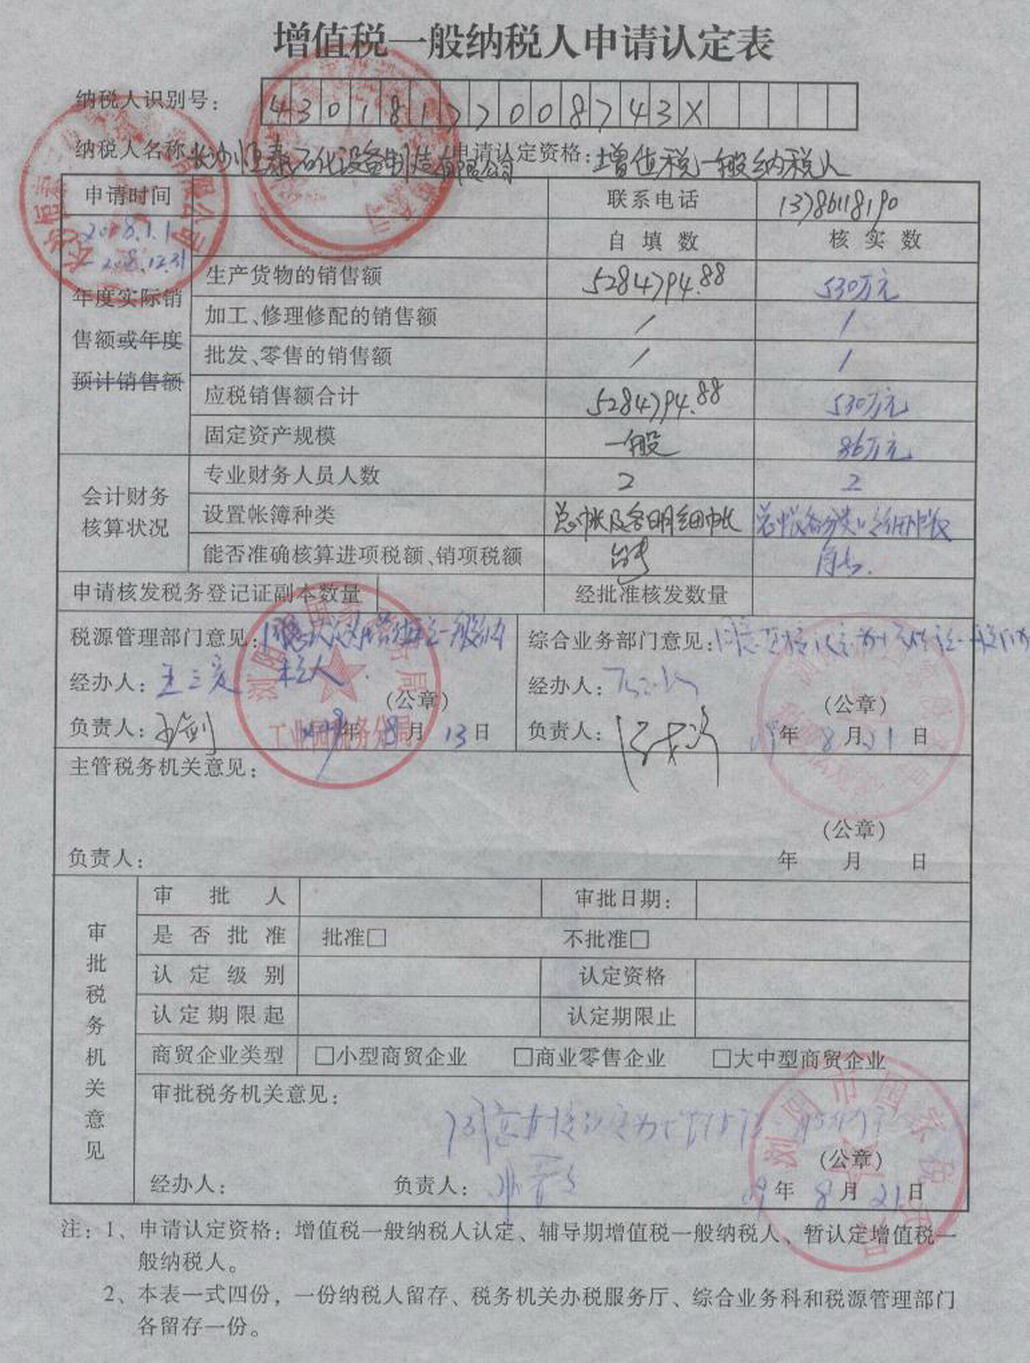 增值税一般纳税人申请认定表
纳税人识别号: 43018177008743X
纳税人名称 长沙恒泰石化设备制造有限公司 申请认定资格: 增值税一般纳税人
申请时间 联系电话 13786118190
2008.1.1 自填数 核实数
-2008.12.31
生产货物的销售额 5284794.88 530万元
年度实际销售额或年度预计销售额
加工、修理修配的销售额 / /
批发、零售的销售额 / /
应税销售额合计 5284794.88 530万元
固定资产规模 一般 86万元
会计财务核算状况
专业财务人员人数 2 2
设置帐簿种类 总帐及各明细帐
能否准确核算进项税额、销项税额 能
申请核发税务登记证副本数量 经批准核发数量
税源管理部门意见: 综合业务部门意见:
经办人: 经办人:
(公章) (公章)
负责人: 年 8月 13日 负责人: 09年 8月 21日
工业园税务分局
主管税务机关意见:
(公章)
负责人: 年 月 日
审批税务机关意见
审批人 审批日期:
是否批准 批准□ 不批准□
认定级别 认定资格
认定期限起 认定期限止
商贸企业类型 □小型商贸企业 □商业零售企业 □大中型商贸企业
审批税务机关意见:
(公章)
经办人: 负责人: 09年 8月 21日
注: 1、申请认定资格: 增值税一般纳税人认定、辅导期增值税一般纳税人、暂认定增值税一
般纳税人。
2、本表一式四份，一份纳税人留存、税务机关办税服务厅、综合业务科和税源管理部门
各留存一份。